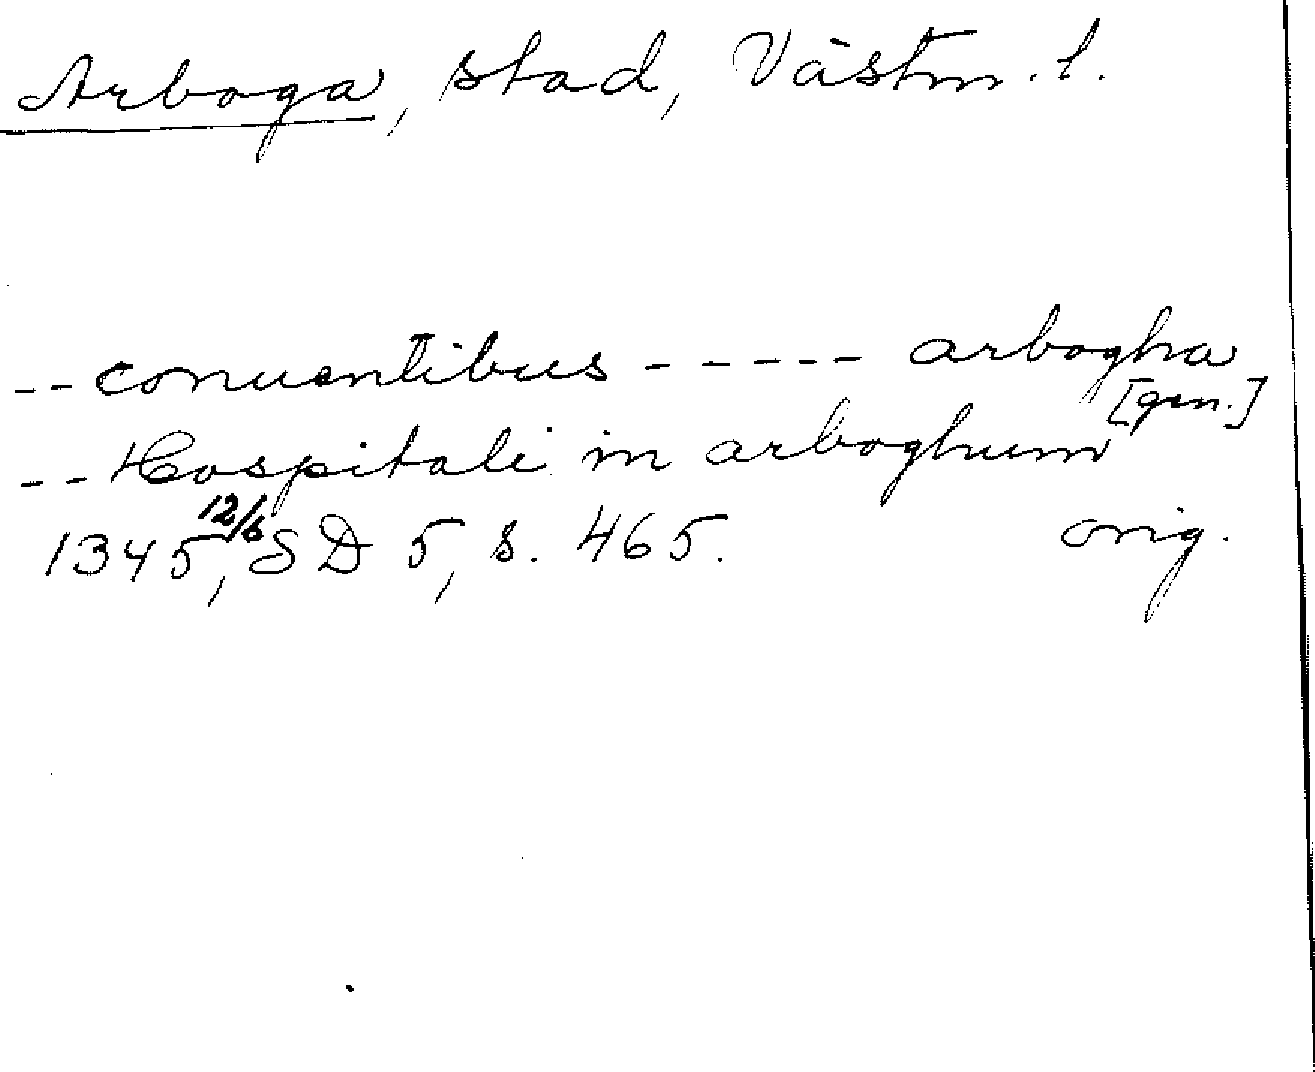 Arboga, stad, Västm. l.
-- conuentibus ----- arbogha
[gen.]
-- Hospitali in arboghum
1345 12/6, SD 5, s. 465. orig.